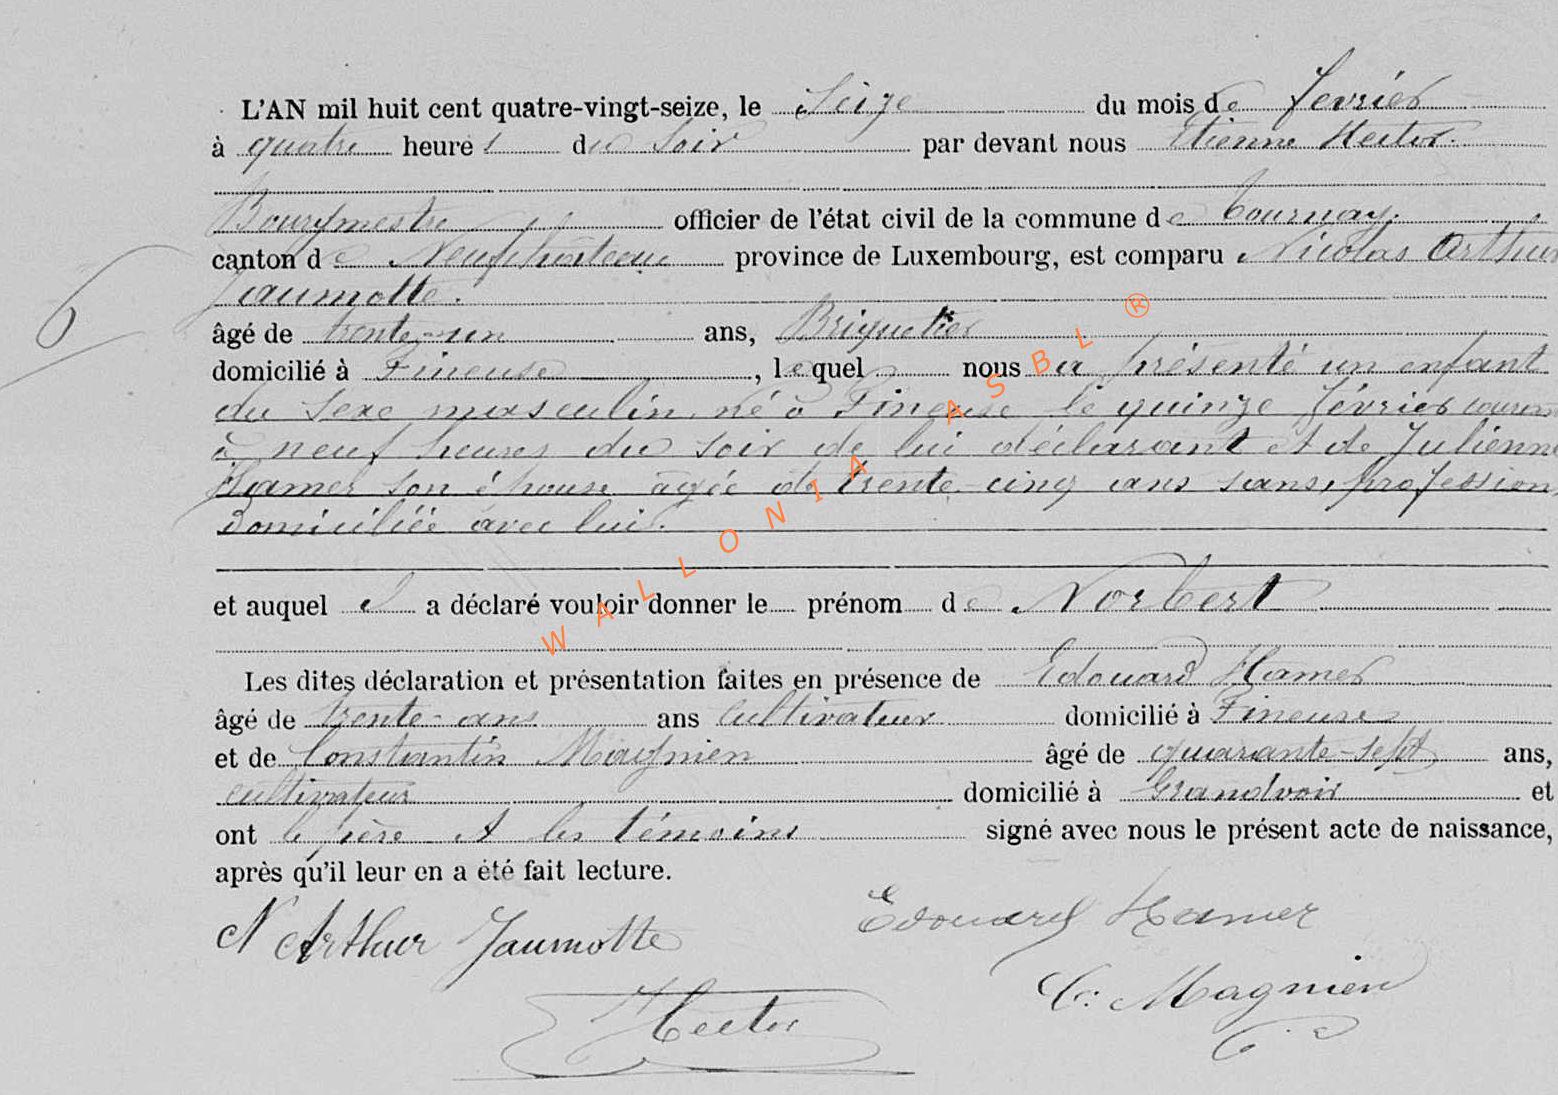 L'AN mil huit cent quatre-vingt-seize, le Seize du mois de février
à quatre heures du soir par devant nous Etienne Hector
Bourgmestre officier de l'état civil de la commune de Tournay,
canton de Neufchâteau province de Luxembourg, est comparu Nicolas Arthur
Jaumotte.
âgé de trente-un ans, Briquetier
domicilié à Fineuse, lequel nous a présenté un enfant
du sexe masculin, né à Fineuse le quinze février courant
à neuf heures du soir de lui déclarant et de Julienne
Hamer son épouse âgée de trente-cinq ans sans profession,
domiciliée avec lui.
et auquel il a déclaré vouloir donner le prénom de Norbert
Les dites déclaration et présentation faites en présence de Edouard Hamer
âgé de trente-ans ans cultivateur domicilié à Fineuse
et de Constantin Magnien âgé de quarante-sept ans,
cultivateur domicilié à Grandvoir et
ont le père et les témoins signé avec nous le présent acte de naissance,
après qu'il leur en a été fait lecture.
N Arthur Jaumotte
Edouard Hamer
C. Magnien
Hector
6
WALLONIA ASBL ®